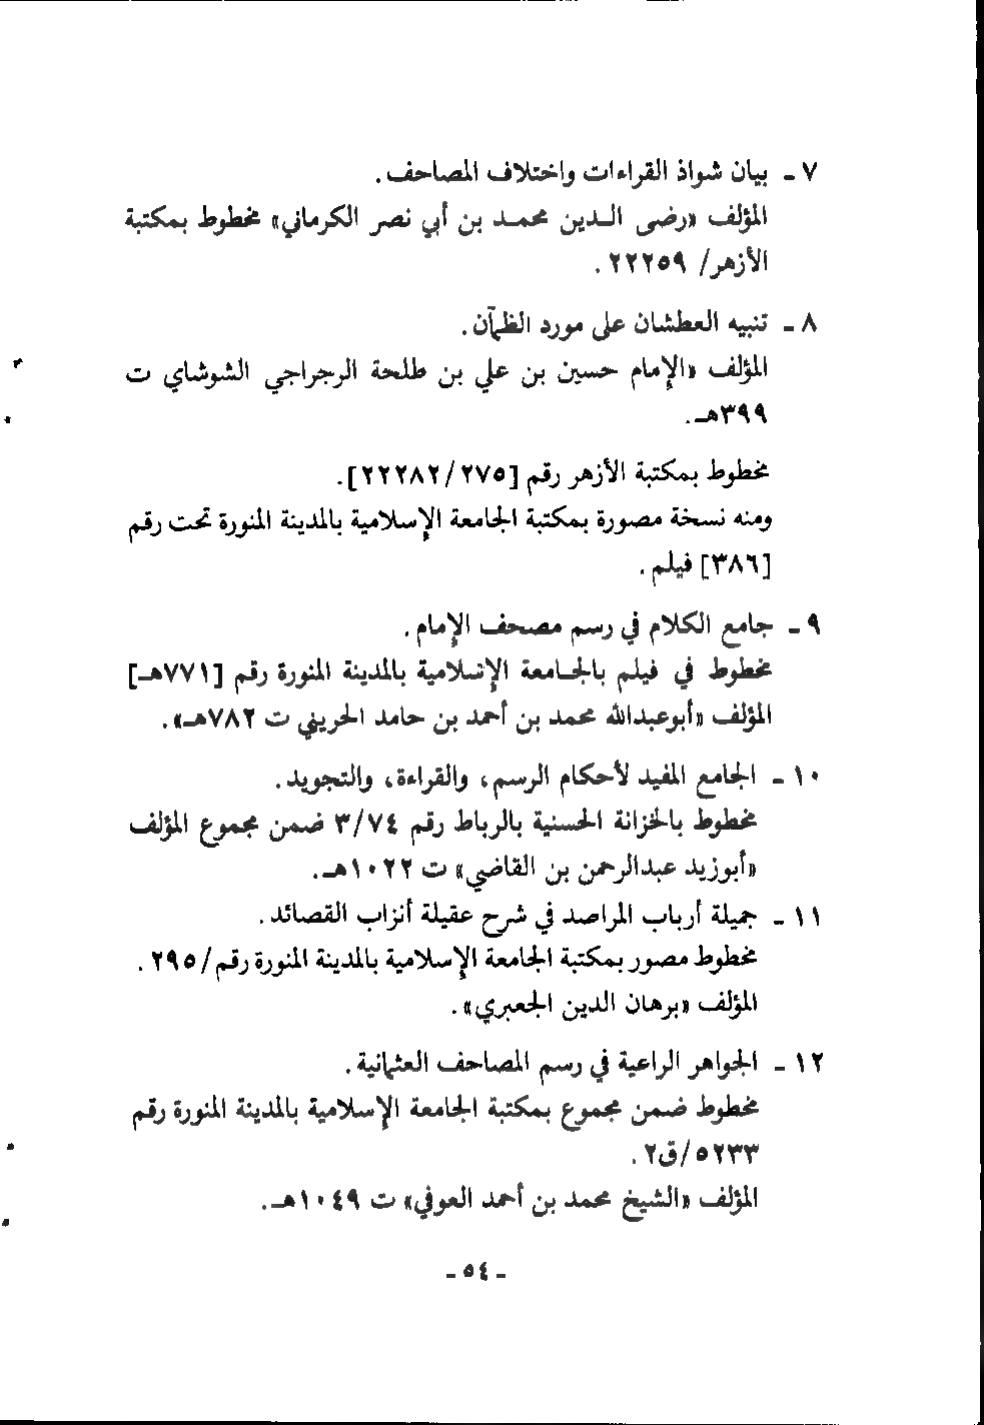 ٧ - بيان شواذ القراءات واختلاف المصاحف.
المؤلف «رضى الـدين محمـد بن أبي نصر الكرماني» مخطوط بمكتبة
الأزهر/ ٢٢٢٥٩.
٨ - تنبيه العطشان على مورد الظمآن.
المؤلف «الإمام حسين بن علي بن طلحة الرجراجي الشوشاي ت
٣٩٩هـ.
مخطوط بمكتبة الأزهر رقم [٢٢٢٨٢/٢٧٥].
ومنه نسخة مصورة بمكتبة الجامعة الإسلامية بالمدينة المنورة تحت رقم
[٣٨٦] فيلم.
٩ - جامع الكلام في رسم مصحف الإمام.
مخطوط في فيلم بالجـامعة الإسلامية بالمدينة المنورة رقم [٧٧١هـ]
المؤلف «أبوعبدالله محمد بن أحمد بن حامد الحريني ت ٧٨٢هـ».
١٠ - الجامع المفيد لأحكام الرسم، والقراءة، والتجويد.
مخطوط بالخزانة الحسنية بالرباط رقم ٣/٧٤ ضمن مجموع المؤلف
«أبوزيد عبدالرحمن بن القاضي» ت ١٠٢٢هـ.
١١ - جميلة أرباب المراصد في شرح عقيلة أنزاب القصائد.
مخطوط مصور بمكتبة الجامعة الإسلامية بالمدينة المنورة رقم/٢٩٥.
المؤلف «برهان الدين الجعبري».
١٢ - الجواهر الراعية في رسم المصاحف العثمانية.
مخطوط ضمن مجموع بمكتبة الجامعة الإسلامية بالمدينة المنورة رقم
٥٢٣٣/ق٢.
المؤلف «الشيخ محمد بن أحمد العوفي» ت ١٠٤٩هـ.
- ٥٤ -